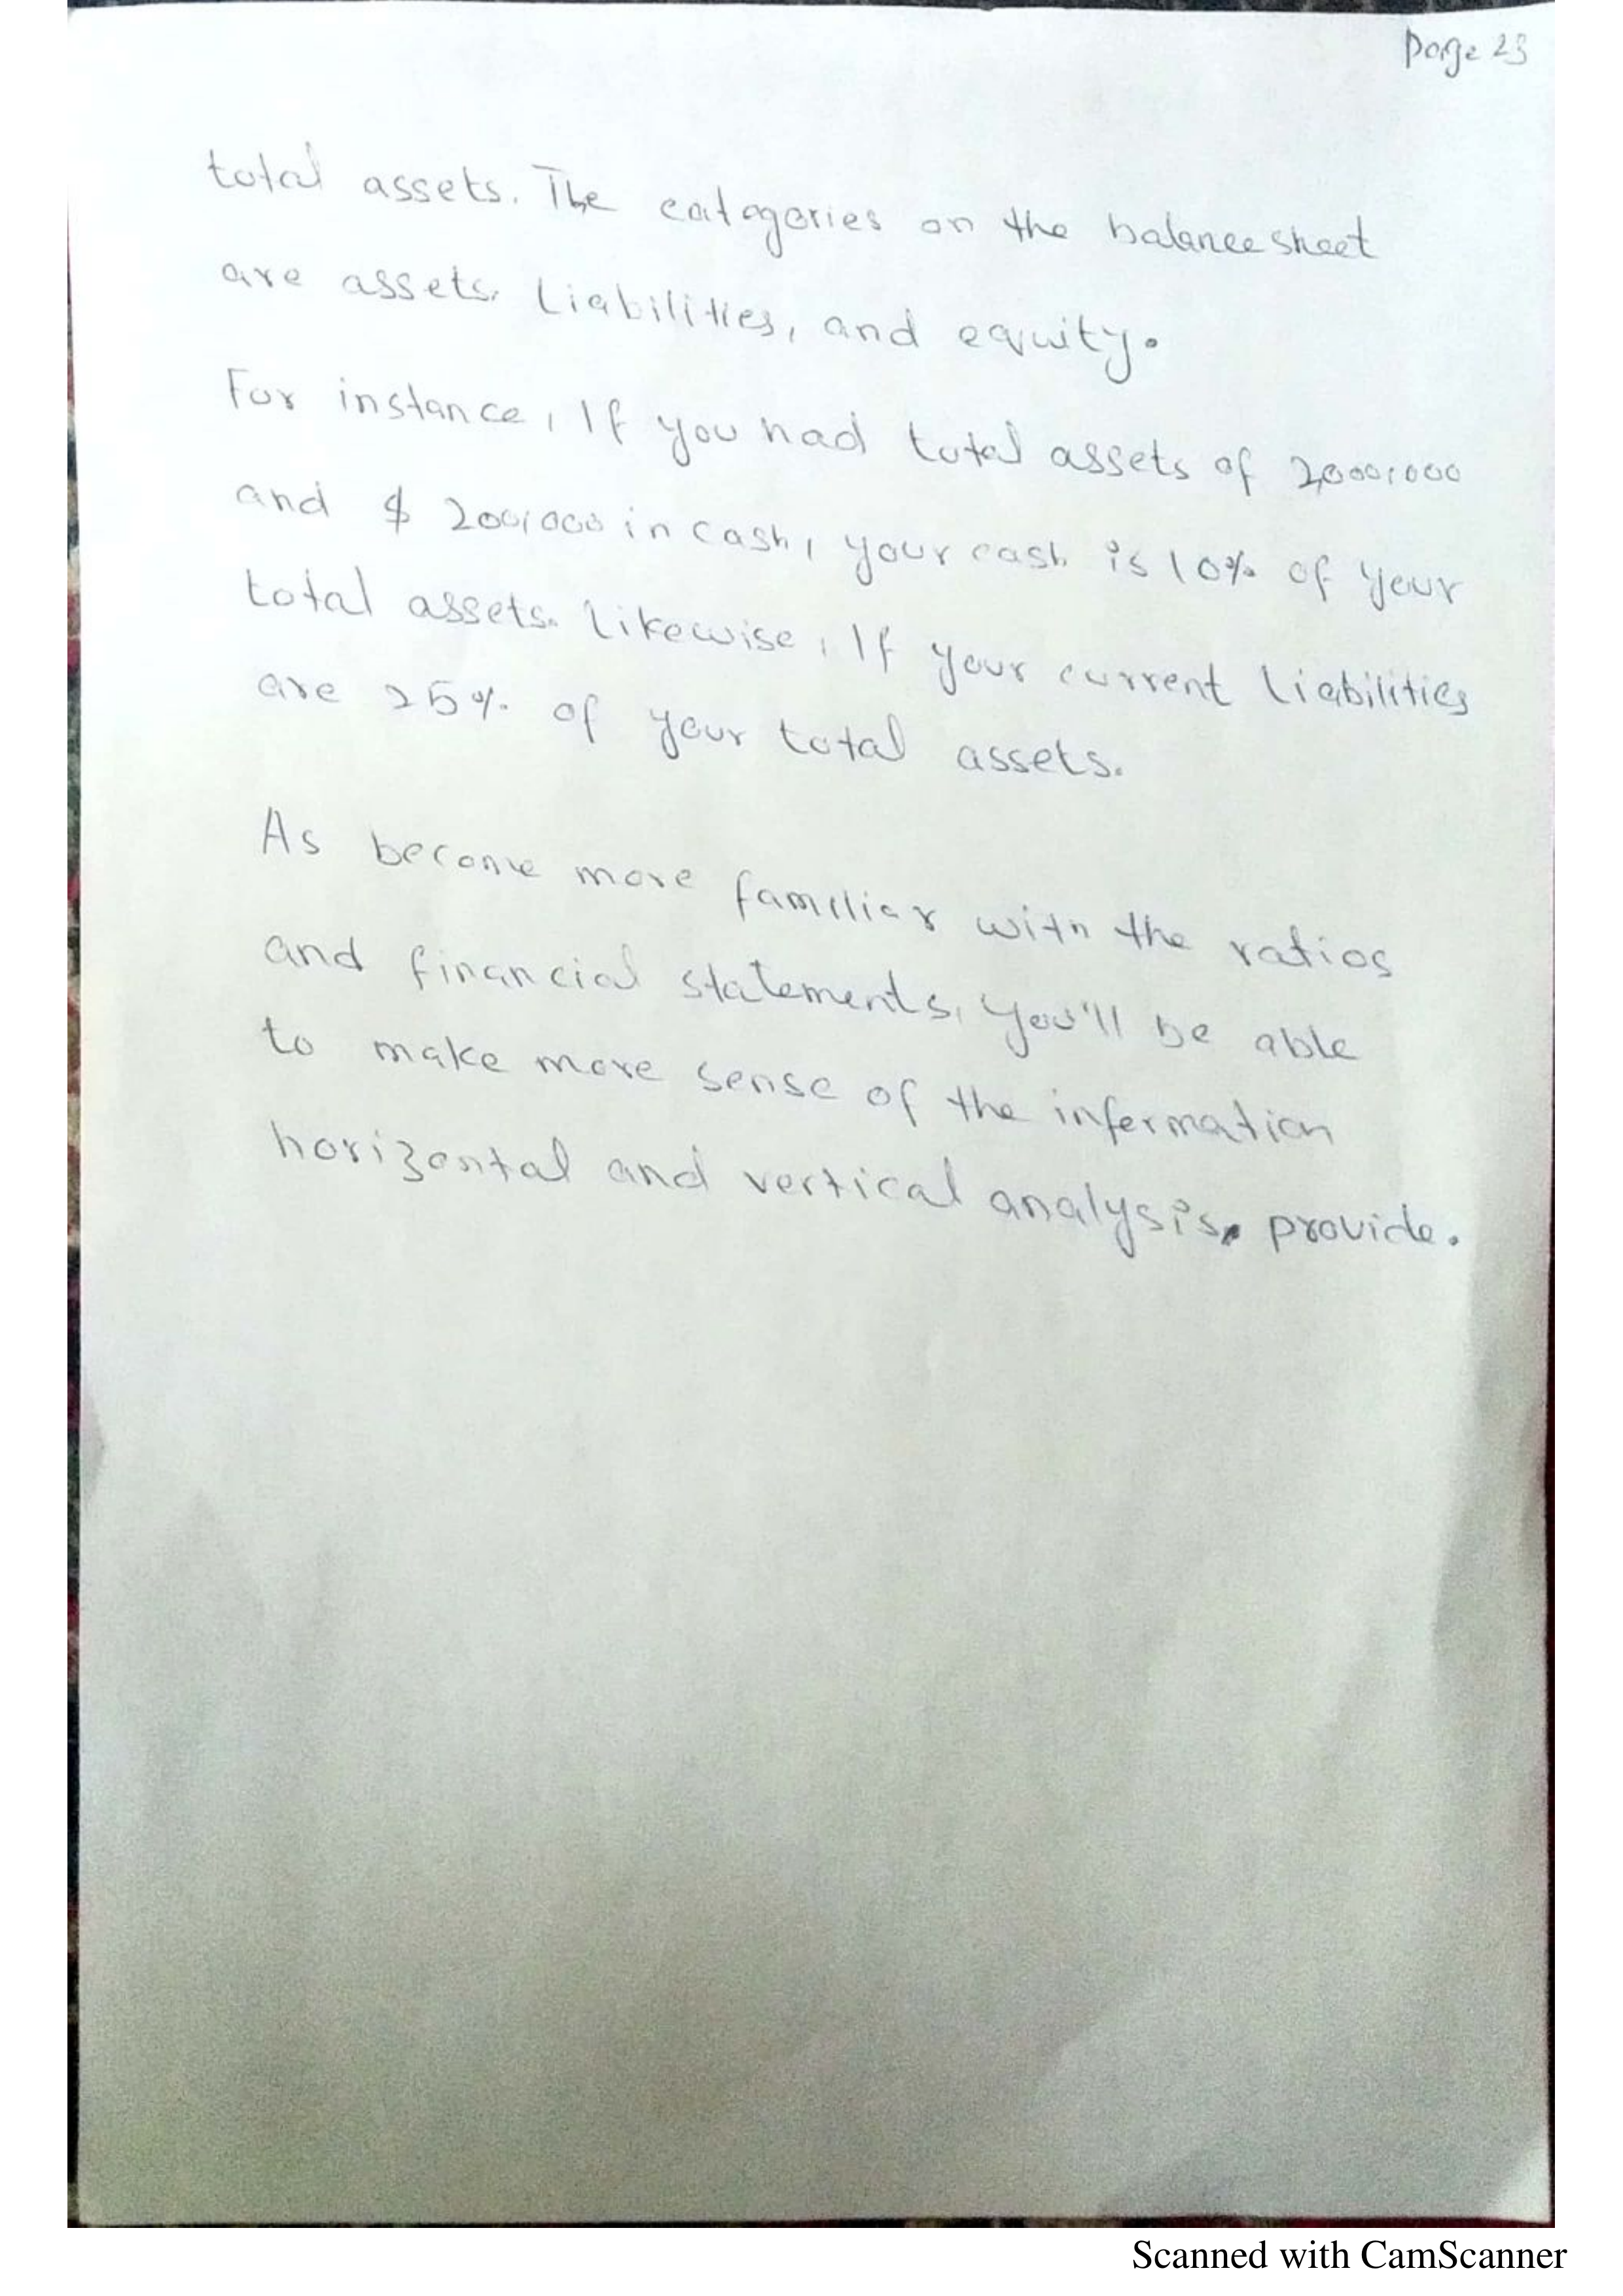 Page 23
total assets. The categories on the balance sheet
are assets, Liabilities, and equity.
For instance, If you had total assets of 2,000,000
and $ 200,000 in cash, your cash is 10% of your
total assets. Likewise, If your current Liabilities
are 25% of your total assets.
As become more familiar with the ratios
and financial statements, you'll be able
to make more sense of the information
horizontal and vertical analysis, provide.
Scanned with CamScanner